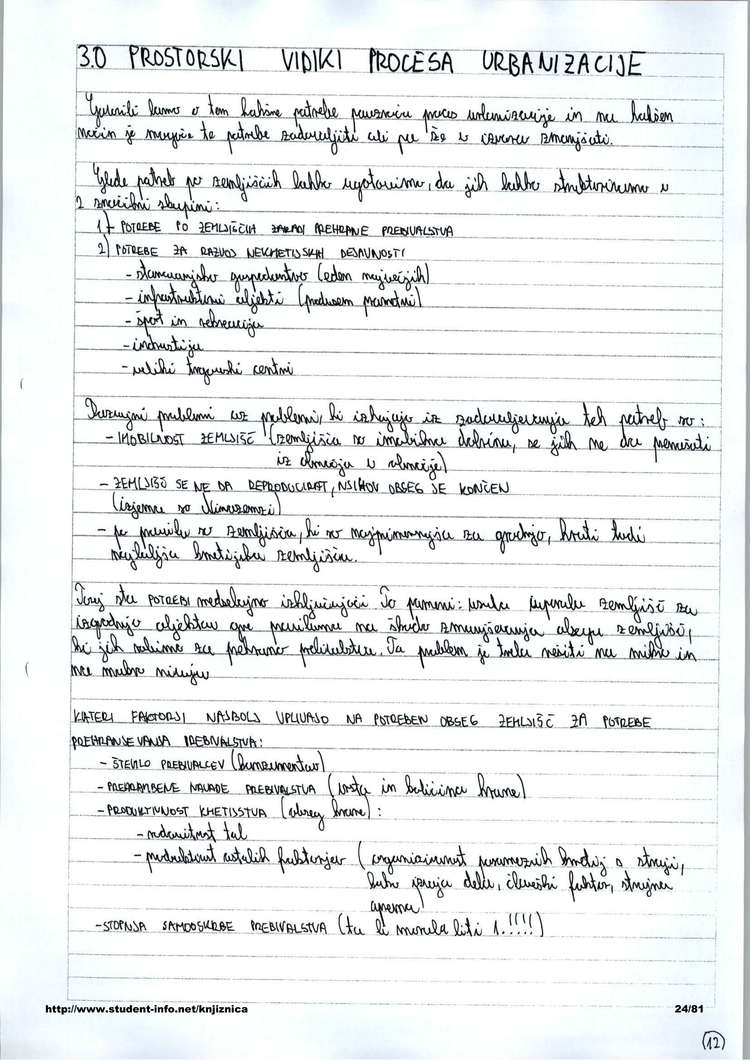 3.0 PROSTORSKI VIDIKI PROCESA URBANIZACIJE
Govorili bomo o tem kakšne potrebe povzroča proces urbanizacije in na kakšen
način je mogoče te potrebe zadovoljiti ali pa že v izvoru zmanjšati.
Glede potreb po zemljiščih lahko ugotovimo, da jih lahko strukturiramo v
2 značilni skupini:
1) POTREBE PO ZEMLJIŠČIH ZARADI PREHRANE PREBIVALSTVA
2) POTREBE ZA RAZVOJ NEKMETIJSKIH DEJAVNOSTI
- stanovanjsko gospodarstvo (eden največjih)
- infrastrukturni objekti (predvsem prometni)
- šport in rekreacija
- industrija
- veliki trgovski centri
problemi oz problemi, ki izhajajo iz zadovoljevanja teh potreb so:
- IMOBILNOST ZEMLJIŠČ (zemljišča so imobilna dobrina, se jih ne da premikati
iz območja v območje)
- ZEMLJIŠČ SE NE DA REPRODUCIRAT, NJIHOV OBSEG JE KONČEN
(izjema so Nizozemci)
- po pravilu so zemljišča, ki so najprimernejša za gradnjo, hkrati tudi
najboljša kmetijska zemljišča.
Torej sta POTREBI medsebojno izključujoči. To pomeni: vsaka uporaba zemljišč za
izgradnjo objektov gre praviloma na škodo zmanjševanja obsega zemljišč,
ki jih rabimo za prehrano prebivalstva. Ta problem je treba rešiti na mikro in
na makro nivoju
KATERI FAKTORJI NAJBOLJ VPLIVAJO NA POTREBEN OBSEG ZEMLJIŠČ ZA POTREBE
PREHRANJEVANJA PREBIVALSTVA:
- ŠTEVILO PREBIVALCEV (konzumentov)
- PREHRAMBENE NAVADE PREBIVALSTVA (vrsta in količina hrane)
- PRODUKTIVNOST KMETIJSTVA (obseg hrane):
- rodovitnost tal
- produktivnost ostalih faktorjev (organiziranost posameznih kmetij s stroji,
delu, človeški faktor, strojna
oprema)
- STOPNJA SAMOOSKRBE PREBIVALSTVA (ta bi morala biti 1.!!!!)
http://www.student-info.net/knjiznica
24/81
12